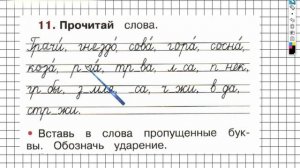 11. Прочитай слова.
Грачи́, гнездо́, сова́, гора́, сосна́,
коза́, р га́, тр ва, л са, п нёк,
гр бы, з мля, са, ч жи, в да,
стр жи.
• Вставь в слова пропущенные бук-
вы. Обозначь ударение.